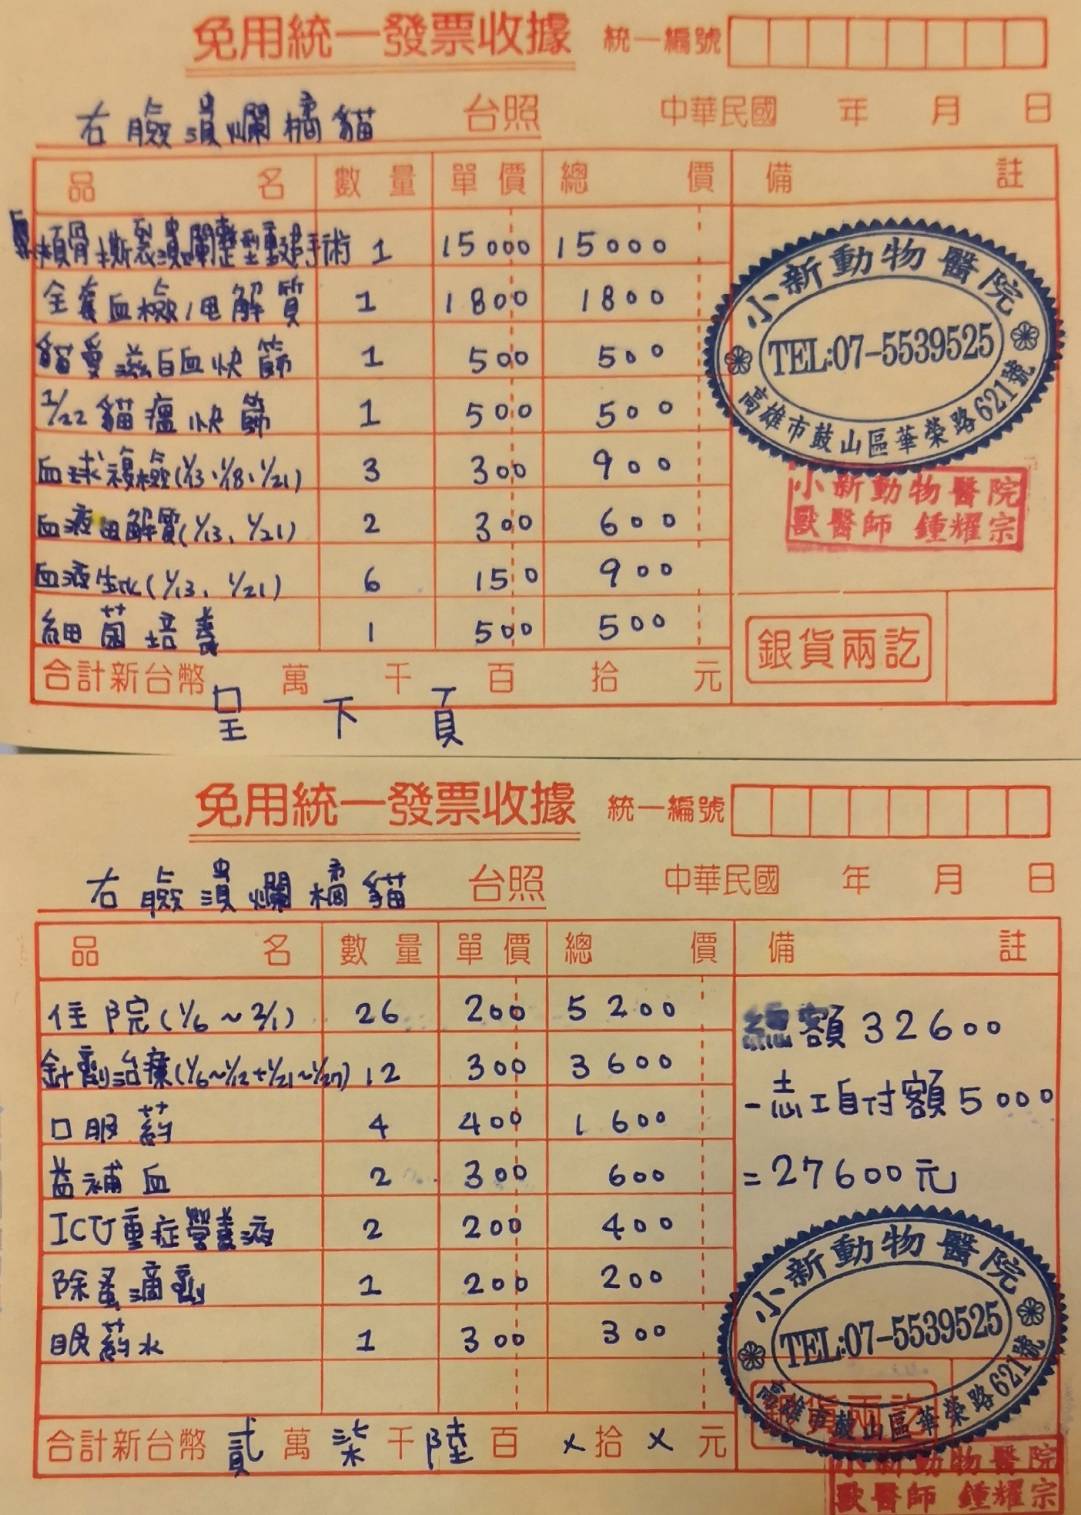 免用統一發票收據 統一編號
右臉潰爛橘貓 台照 中華民國 年 月 日
品名 數量 單價 總價 備註
顴骨撕裂潰爛整型重建手術 1 15000 15000
全套血檢/電解質 1 1800 1800
貓愛滋白血快篩 1 500 500
1/22 貓瘟快篩 1 500 500
血球複檢(1/13、1/18、1/21) 3 300 900
血液电解質(1/13、1/21) 2 300 600
血液生化(1/13、1/21) 6 150 900
細菌培養 1 500 500
合計新台幣 萬 千 百 拾 元
呈下頁
小新動物醫院
TEL:07-5539525
高雄市鼓山區華榮路621號
小新動物醫院
獸醫師 鍾耀宗
銀貨兩訖
免用統一發票收據 統一編號
右臉潰爛橘貓 台照 中華民國 年 月 日
品名 數量 單價 總價 備註
住院(1/6~2/1) 26 200 5200
針劑治療(1/6~1/12+1/21~1/27) 12 300 3600
口服葯 4 400 1600
益補血 2 300 600
ICU重症營養液 2 200 400
除蚤滴劑 1 200 200
眼葯水 1 300 300
合計新台幣 貳萬柒千陸百x拾x元
總額32600
-志工自付額5000
=27600元
小新動物醫院
TEL:07-5539525
高雄市鼓山區華榮路621號
銀貨兩訖
小新動物醫院
獸醫師 鍾耀宗